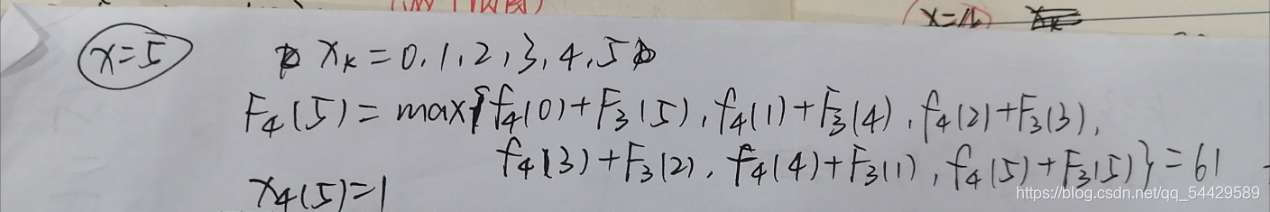 x=5 xₖ=0,1,2,3,4,5
F₄(5)=max{f₄(0)+F₃(5),f₄(1)+F₃(4),f₄(2)+F₃(3),
f₄(3)+F₃(2),f₄(4)+F₃(1),f₄(5)+F₃(5)}=61
x₄(5)=1
https://blog.csdn.net/qq_54429589